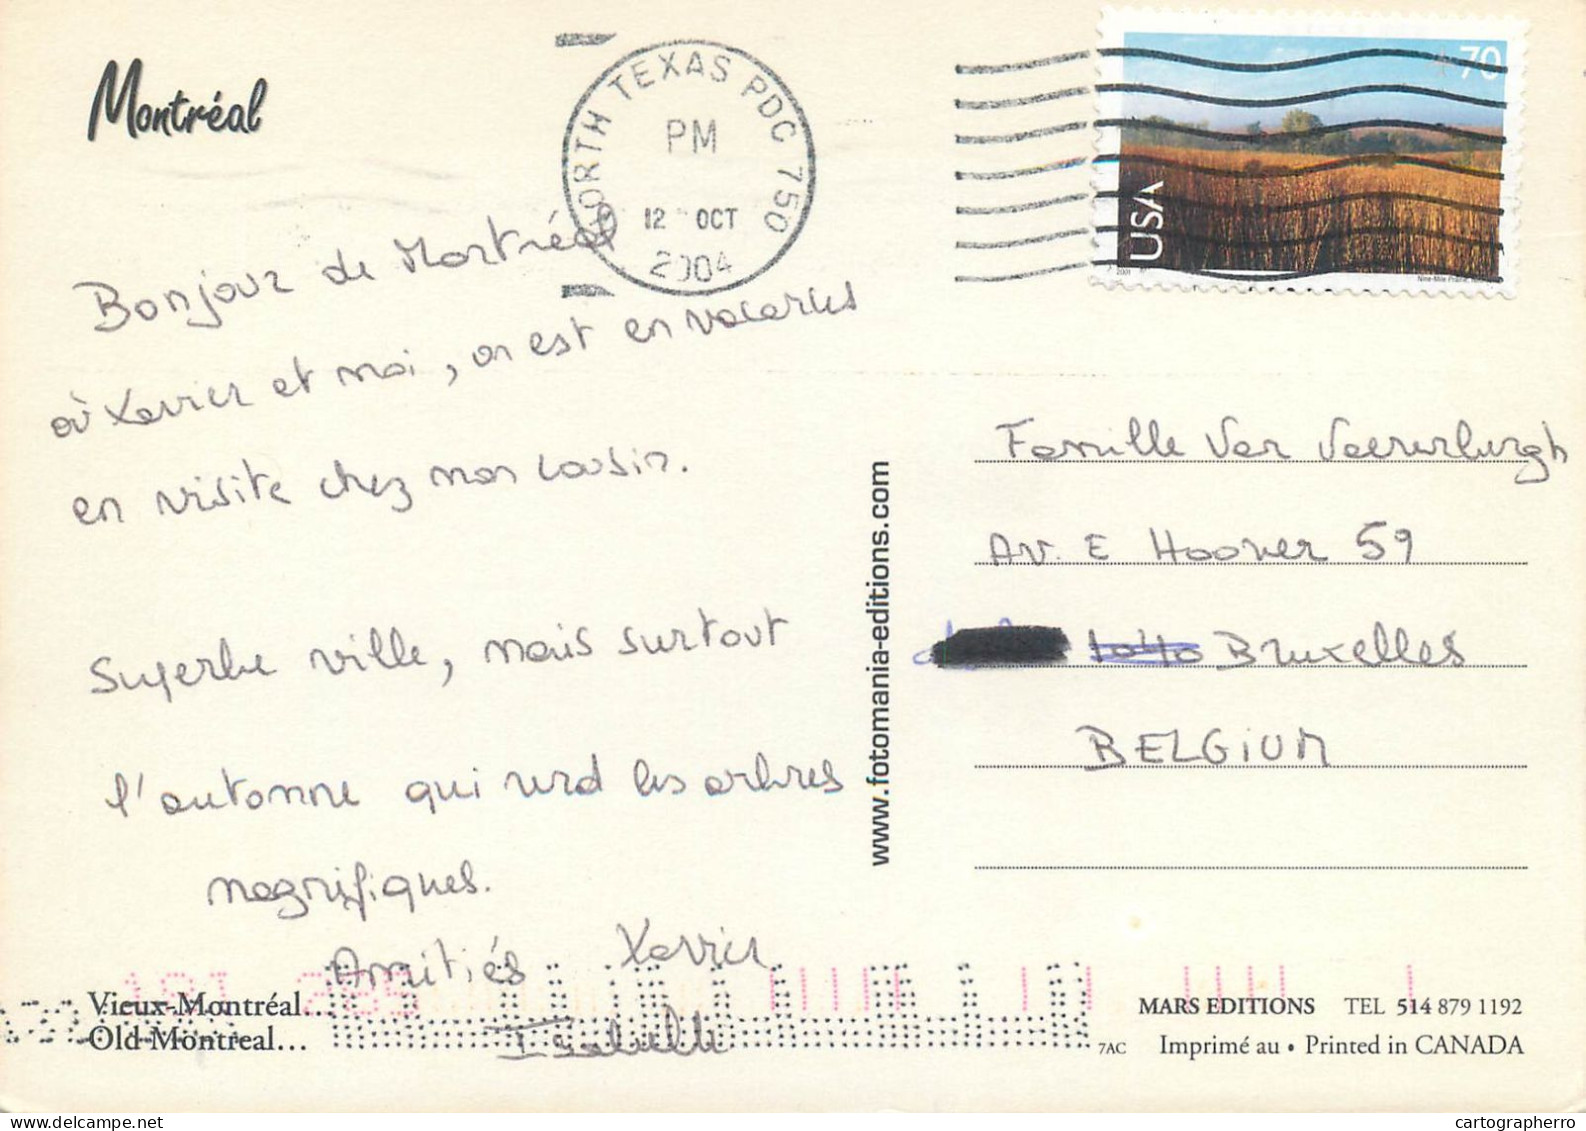 Montréal
NORTH TEXAS PDC 750
PM
12 OCT
2004
70
USA
2001
Bonjour de Montréal
où Xavier et moi, on est en vacances
en visite chez mon cousin.
Superbe ville, mais surtout
l'automne qui rend les arbres
magnifiques.
Amitiés Xavier
Isabelle
www.fotomania-editions.com
Famille Van
Av. E Hoover 59
1040 Bruxelles
BELGIUM
Vieux-Montréal...
Old Montreal...
7AC
MARS EDITIONS TEL 514 879 1192
Imprimé au • Printed in CANADA
cartographerro